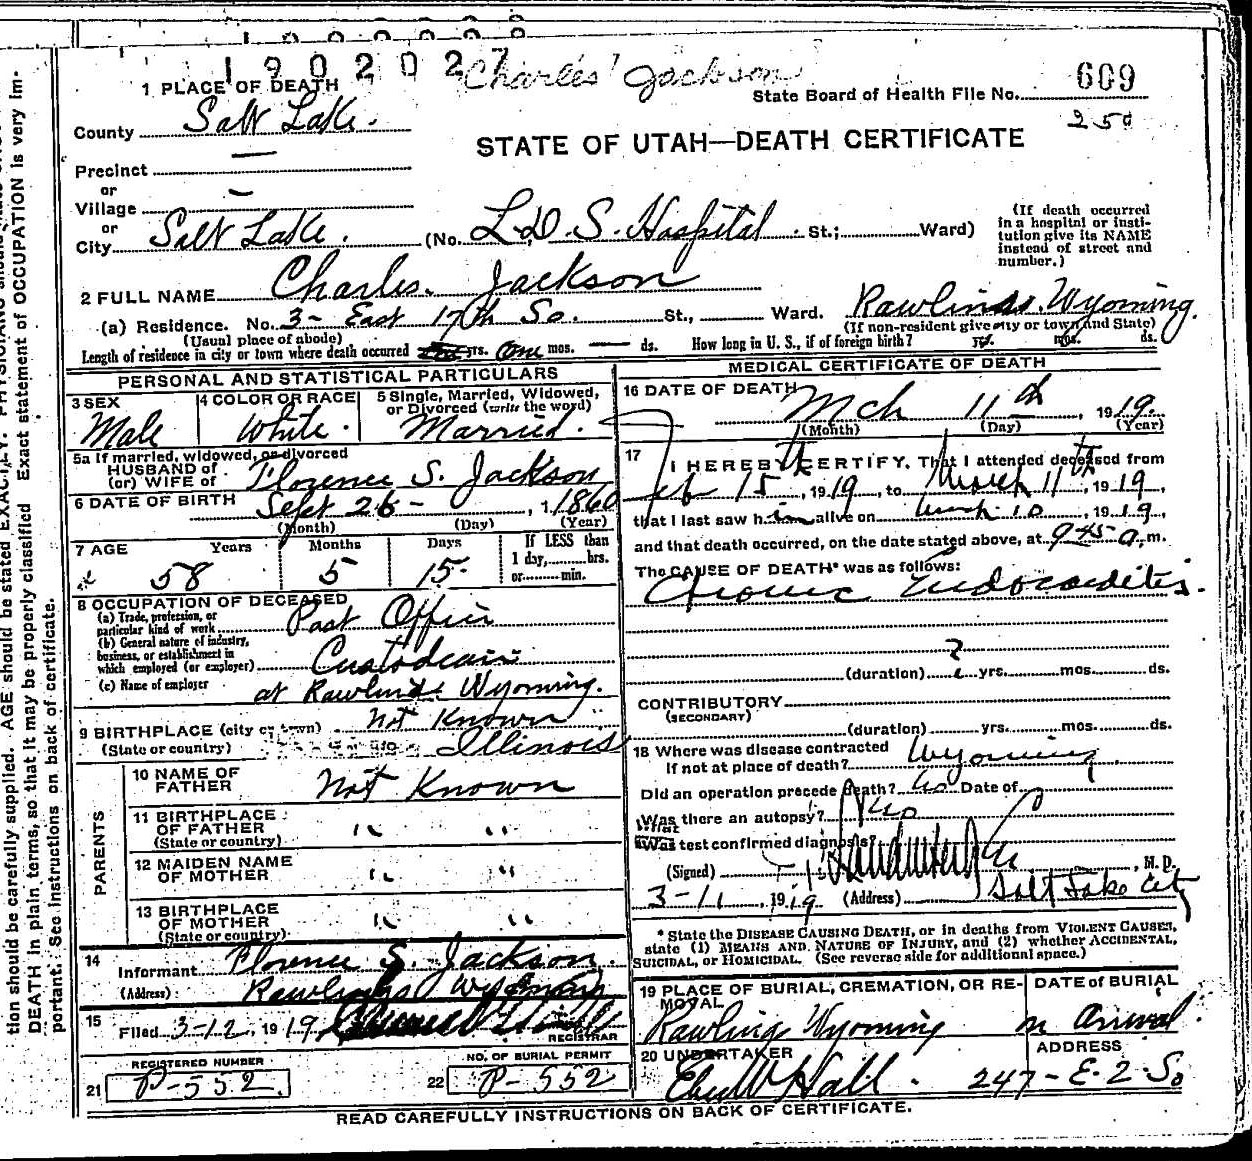 1902027 Charles Jackson
1 PLACE OF DEATH
State Board of Health File No. 609
250
County Salt Lake.
STATE OF UTAH—DEATH CERTIFICATE
Precinct —
or
Village —
or
City Salt Lake. (No. L.D.S. Hospital St.; Ward)
(If death occurred in a hospital or institution give its NAME instead of street and number.)
2 FULL NAME Charles. Jackson
(a) Residence. No. 3- East 17th So. St., Ward. Rawlins. Wyoming.
(Usual place of abode) (If non-resident give city or town and State)
Length of residence in city or town where death occurred yrs. One mos. — ds. How long in U. S., if of foreign birth? yrs. mos. ds.
PERSONAL AND STATISTICAL PARTICULARS
3 SEX
Male
4 COLOR OR RACE
White.
5 Single, Married, Widowed, or Divorced (write the word)
Married.
5a If married, widowed, or divorced
HUSBAND of
(or) WIFE of Florence S. Jackson
6 DATE OF BIRTH Sept 26- , 1860
(Month) (Day) (Year)
7 AGE Years Months Days If LESS than
1 day, hrs.
or min.
58 5 15-
8 OCCUPATION OF DECEASED
(a) Trade, profession, or
particular kind of work Post Office
(b) General nature of industry,
business, or establishment in
which employed (or employer) Custodean
(c) Name of employer at Rawlins. Wyoming.
9 BIRTHPLACE (city or town) Not Known
(State or country) Illinois
PARENTS
10 NAME OF
FATHER Not Known
11 BIRTHPLACE
OF FATHER " "
(State or country)
12 MAIDEN NAME
OF MOTHER " "
13 BIRTHPLACE
OF MOTHER " "
(State or country)
14
Informant Florence S. Jackson.
(Address) Rawlings Wyoming
15
Filed 3-12, 1919
REGISTRAR
REGISTERED NUMBER
21 P-552
NO. OF BURIAL PERMIT
22 P-552
MEDICAL CERTIFICATE OF DEATH
16 DATE OF DEATH Mch 11th, 1919.
(Month) (Day) (Year)
17
I HEREBY CERTIFY, That I attended deceased from
Feb 15th, 1919, to March 11th, 1919,
that I last saw him alive on March 10, 1919,
and that death occurred, on the date stated above, at 9 45 a. m.
The CAUSE OF DEATH* was as follows:
Chronic Endocarditis.
(duration) ? yrs. mos. ds.
CONTRIBUTORY
(SECONDARY)
(duration) yrs. mos. ds.
18 Where was disease contracted
If not at place of death? Wyoming
Did an operation precede death? No Date of
Was there an autopsy? No
What test confirmed diagnosis?
(Signed) , M. D.
3-11, 1919 (Address) Salt Lake City
* State the DISEASE CAUSING DEATH, or in deaths from VIOLENT CAUSES,
state (1) MEANS AND NATURE OF INJURY, and (2) whether ACCIDENTAL,
SUICIDAL, or HOMICIDAL. (See reverse side for additional space.)
19 PLACE OF BURIAL, CREMATION, OR REMOVAL
Rawlings Wyoming
DATE OF BURIAL
on Arrival.
20 UNDERTAKER
Eber W Hall.
ADDRESS
247-E-2-So
READ CAREFULLY INSTRUCTIONS ON BACK OF CERTIFICATE.
tion should be carefully supplied. AGE should be stated EXACTLY. PHYSICIANS should
DEATH in plain terms, so that it may be properly classified. Exact statement of OCCUPATION is very im-
portant. See instructions on back of certificate.